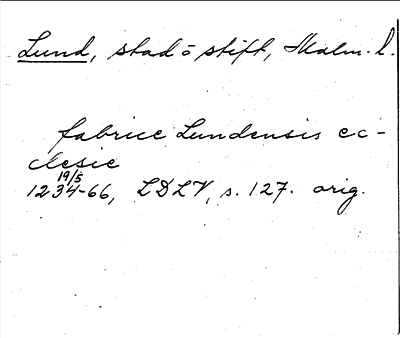 Lund, stad o stift, Malm. l.
fabrice Lundensis ec-
clesie
19/5
1234-66, LDLV, s. 127. orig.